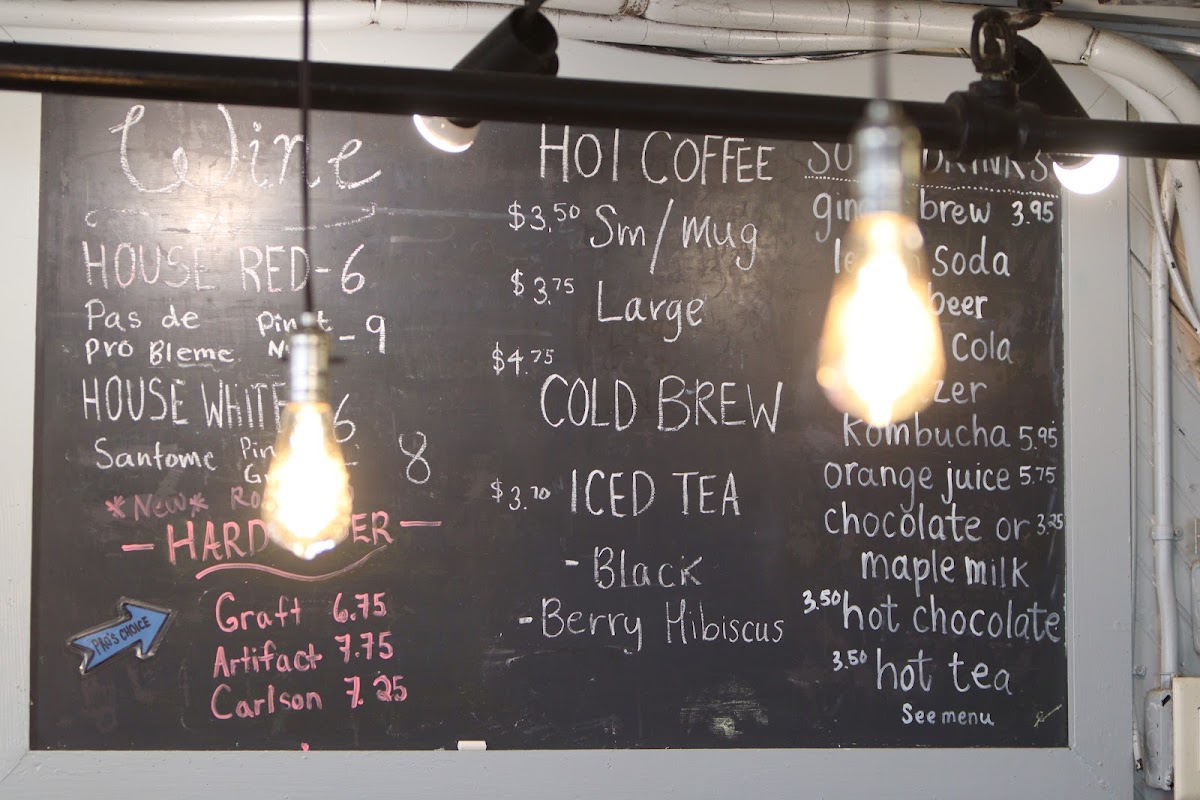 Wine
HOUSE RED-6
Pas de Pinot
Pro Bleme -9
HOUSE WHITE 6
Santome 8
*New*
- HARD -
Graft 6.75
Artifact 7.75
Carlson 7.25
PRO'S CHOICE
HOT COFFEE
$3.50 Sm/Mug
$3.75 Large
$4.75
COLD BREW
$3.70 ICED TEA
- Black
- Berry Hibiscus
DRINKS
brew 3.95
soda
beer
Cola
Kombucha 5.95
orange juice 5.75
chocolate or 3.25
maple milk
3.50 hot chocolate
3.50 hot tea
See menu